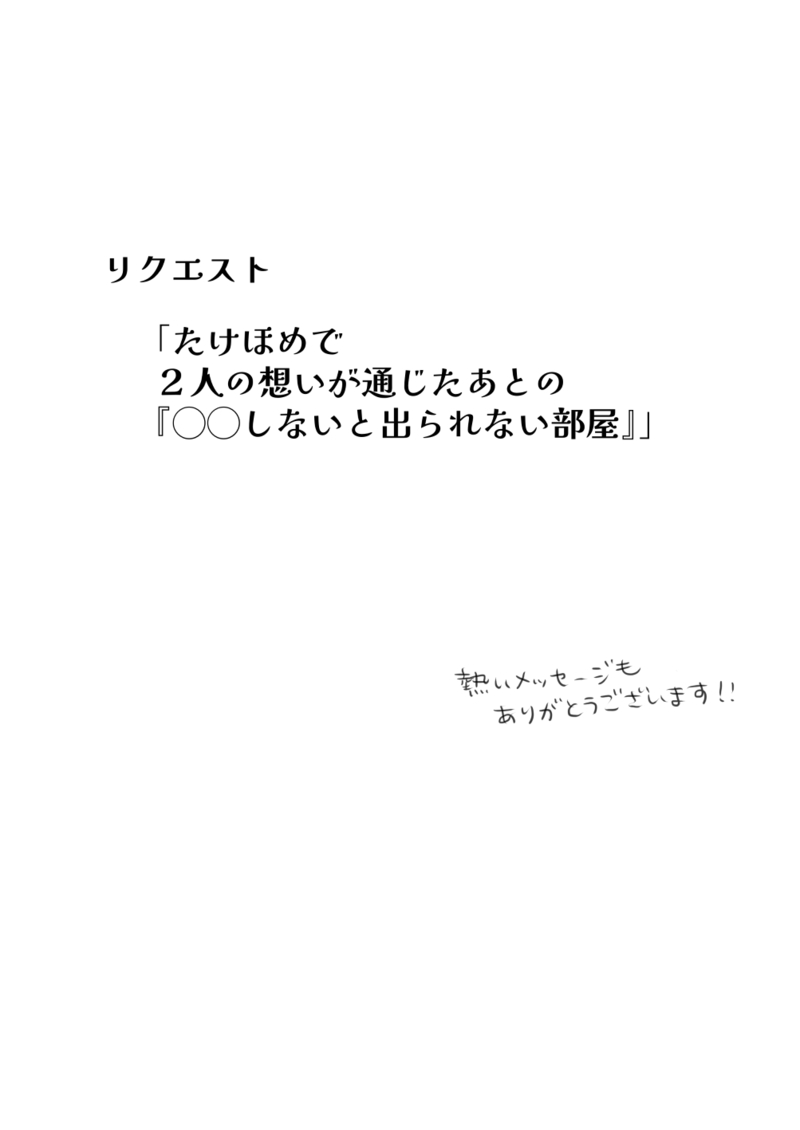 リクエスト
「たけほめで
２人の想いが通じたあとの
『◯◯しないと出られない部屋』」
熱いメッセージも
ありがとうございます!!